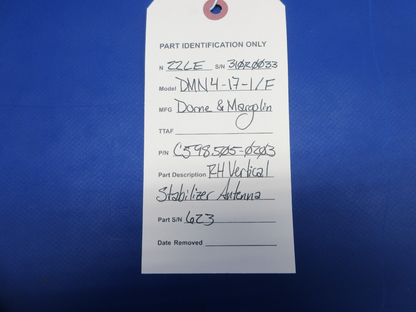 PART IDENTIFICATION ONLY
N 22LE S/N 310R0033
Model DMN4-17-1/F
MFG Dorne & Margolin
TTAF
P/N C598505-0203
Part Description RH Vertical
Stabilizer Antenna
Part S/N 623
Date Removed